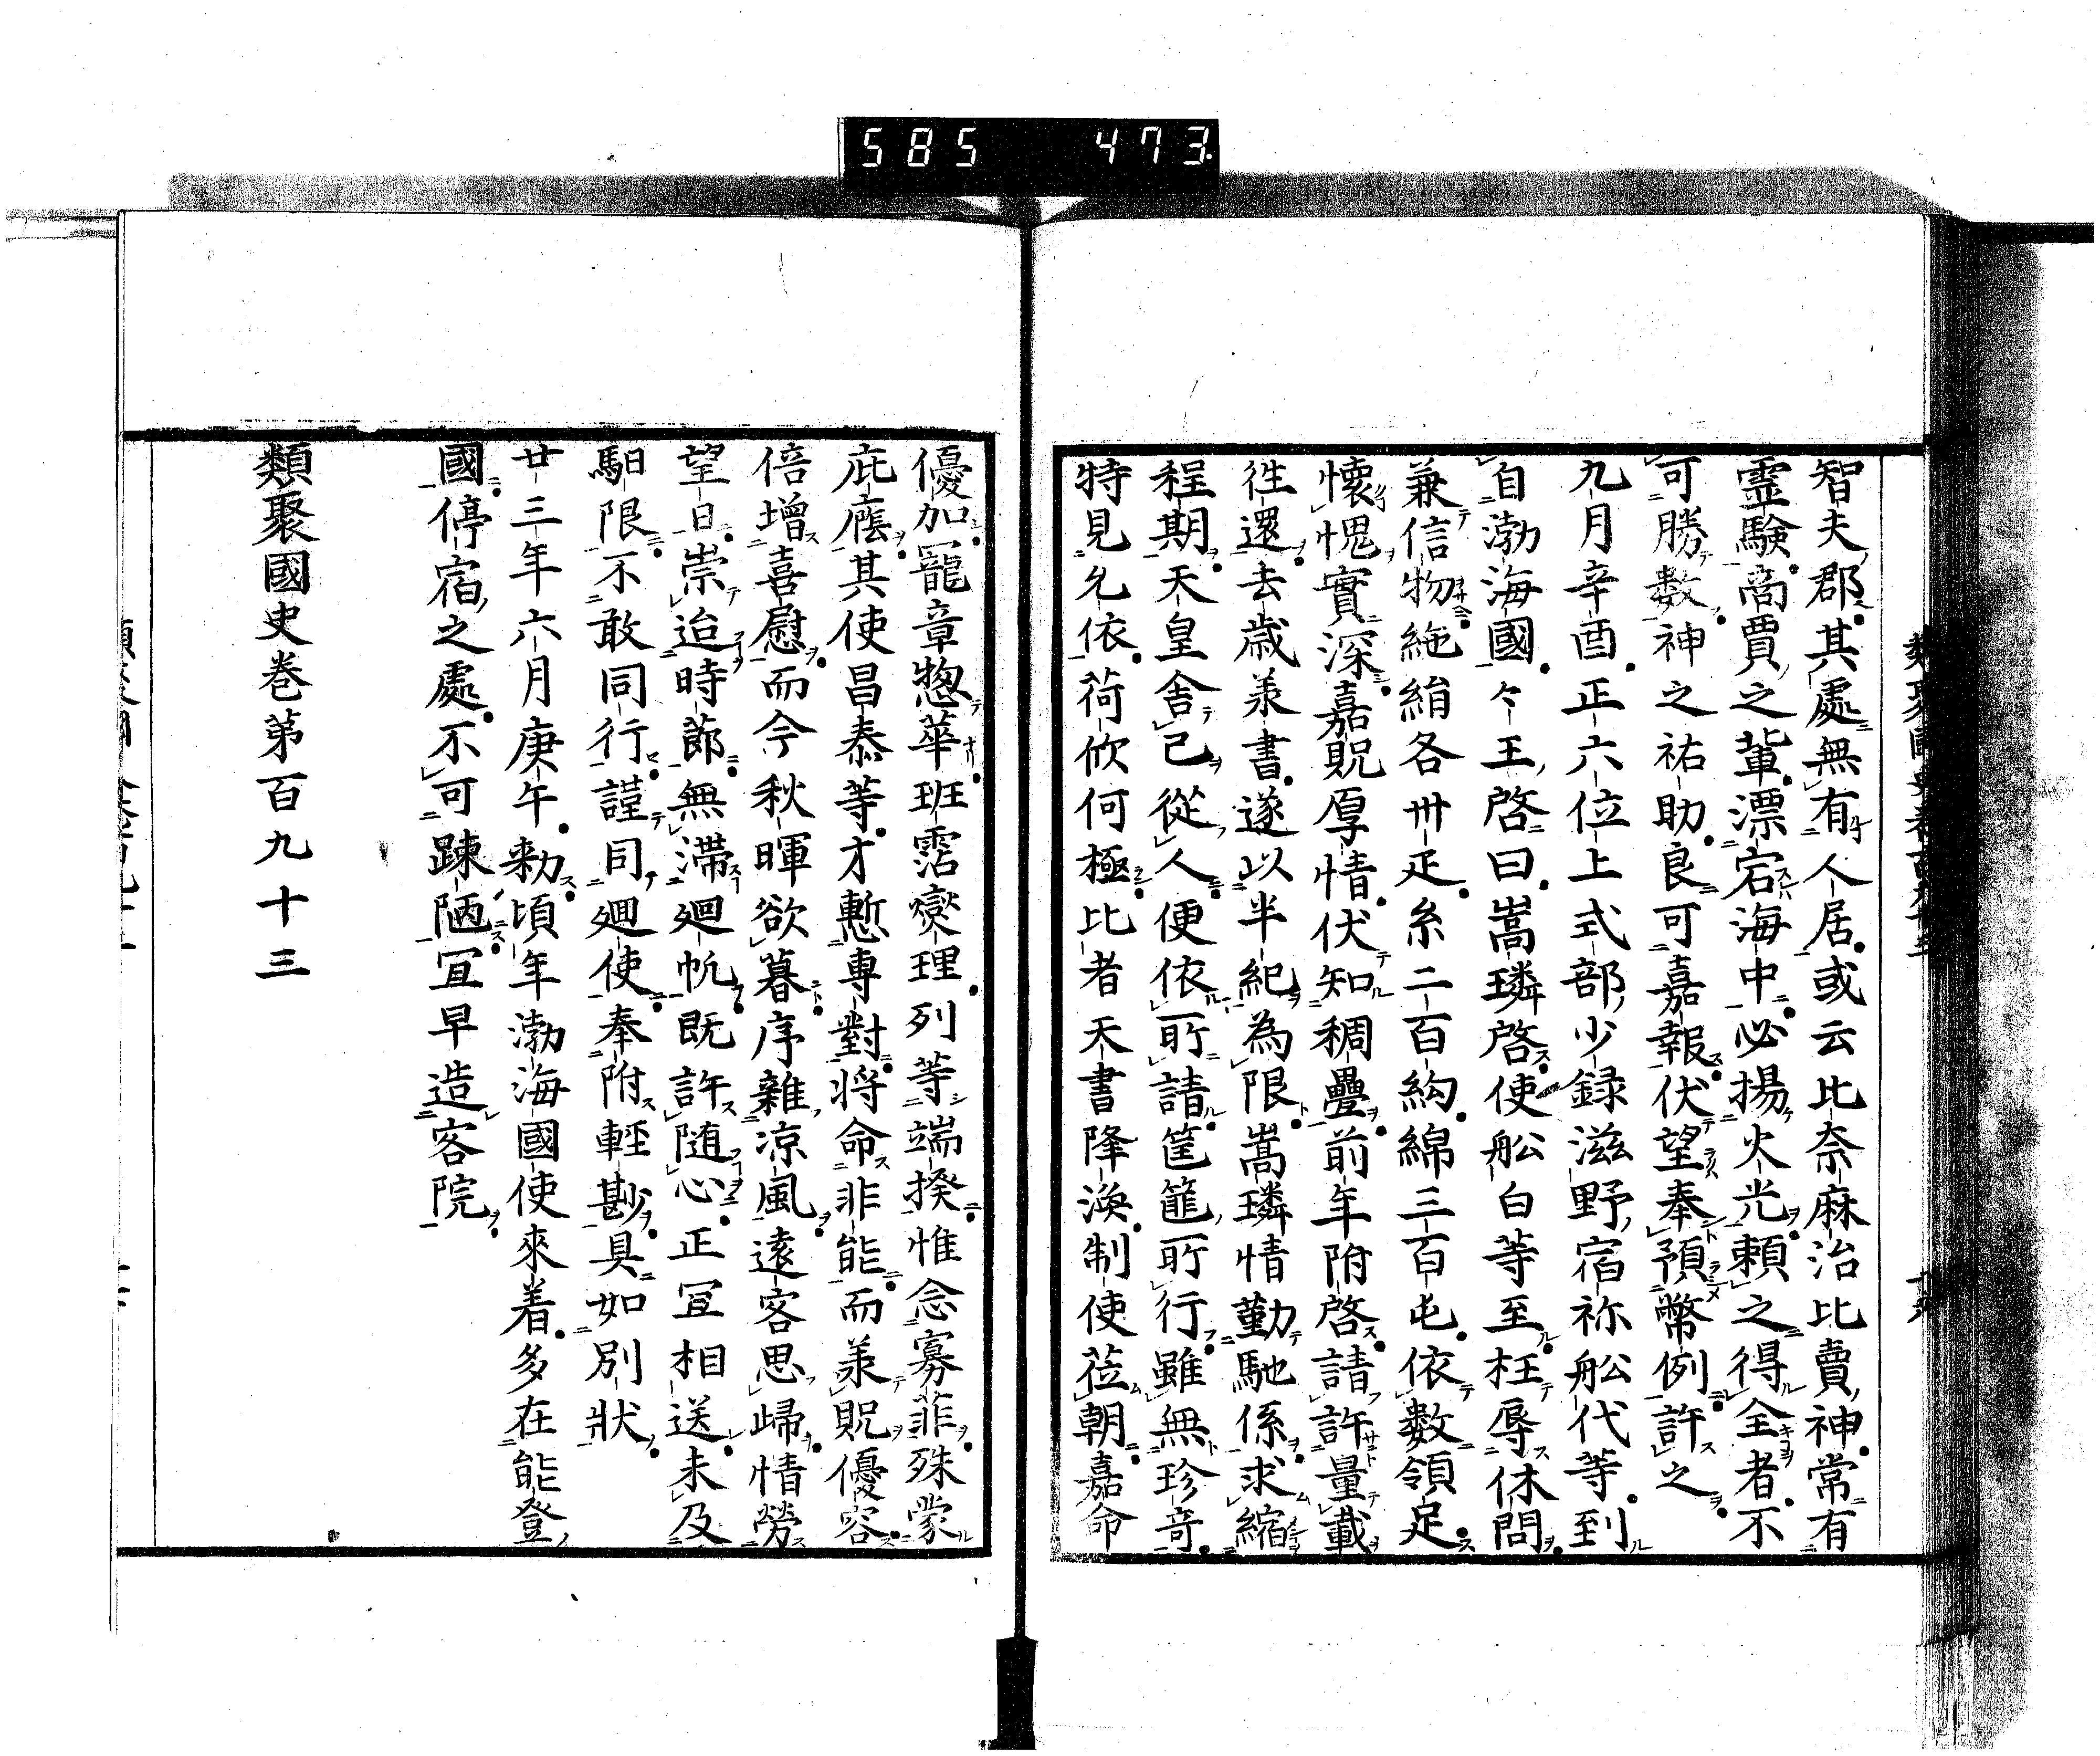 585 473
智夫郡其處無有人居或云比奈麻治比賣神常有
霊驗商賈之輩漂宕海中必揚火光頼之得全者不
可勝數神之祐助良可嘉報伏望奉預幣例許之
九月辛酉正六位上式部少録滋野宿祢舩代等到
自渤海國々王啓曰嵩璘啓使舩白等至枉辱休問
兼信物絁絹各卅疋糸二百絇綿三百屯依數領足
懷愧實深嘉貺厚情伏知稠疊前年附啓請許量載
徃還去歳羕書遂以半紀為限嵩璘情勤馳係求縮
程期天皇舎己從人便依所請筐篚所行雖無珍竒
特見允依荷欣何極比者天書降渙制使莅朝嘉命
優加寵章惣華班霑燮理列等端揆惟念寡菲殊蒙
庇廕其使昌泰等才慙專對将命非能而羕貺優容
倍增喜慰而今秋暉欲暮序雜凉風遠客思歸情勞
望日崇迨時莭無滯廻帆既許随心正冝相送未及
馹限不敢同行謹同廻使奉附輕尠具如別状
廿三年六月庚午勅頃年渤海國使來着多在能登
國停宿之處不可踈陋冝早造客院
類聚國史巻第百九十三